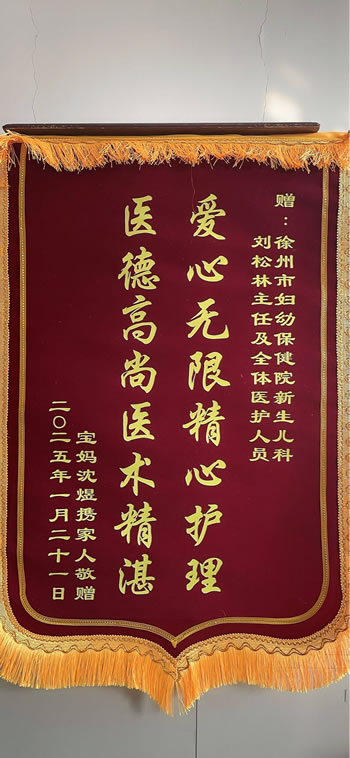 赠：徐州市妇幼保健院新生儿科
刘松林主任及全体医护人员
爱心无限精心护理
医德高尚医术精湛
宝妈沈煜携家人敬赠
二〇二五年一月二十一日